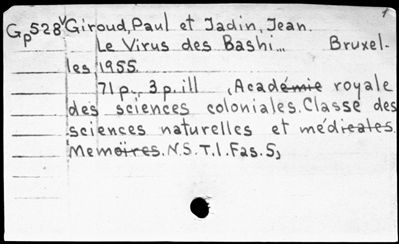 Gp528V Giroud, Paul et Jadin, Jean.
Le Virus des Bashi... Bruxel-
les, 1955.
71p., 3p. ill (Académie royale
des sciences coloniales. Classe des
sciences naturelles et médicales.
Memoires. N.S. T.1. Fas. 5)